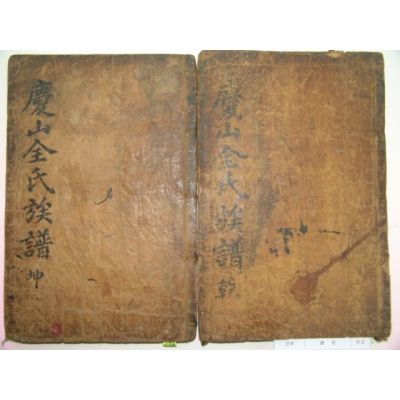 慶山全氏族譜 乾
慶山全氏族譜 坤